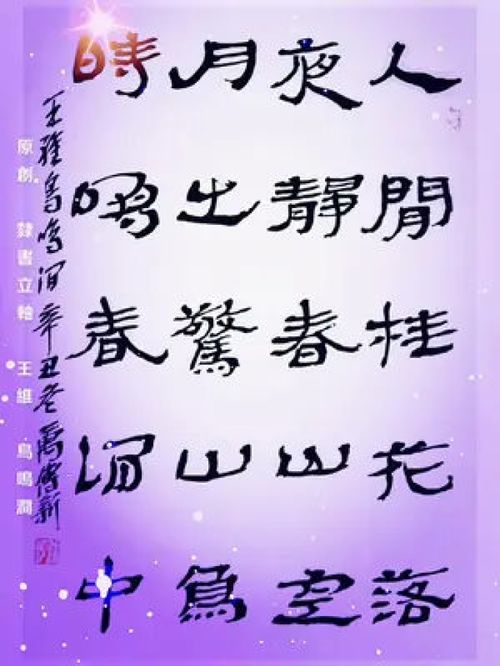 人閒桂花落
夜靜春山空
月出驚山鳥
時鳴春澗中
王維鳥鳴澗 辛丑冬 傳新
原創 隸書立軸 王維 鳥鳴澗